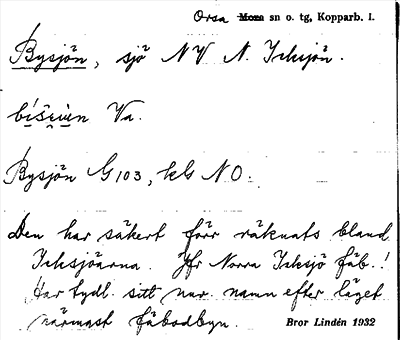 Orsa Mora sn o. tg, Kopparb. l.
Bysjön, sjö NV N. Icksjön.
Va.
Bysjön G103, kbl NO.
Den har säkert förr räknats bland
Icksjöarna. Jfr Norra Icksjö fäb.!
Har tydl. sitt nuv. namn efter läget
närmast fäbodbyn. Bror Lindén 1932